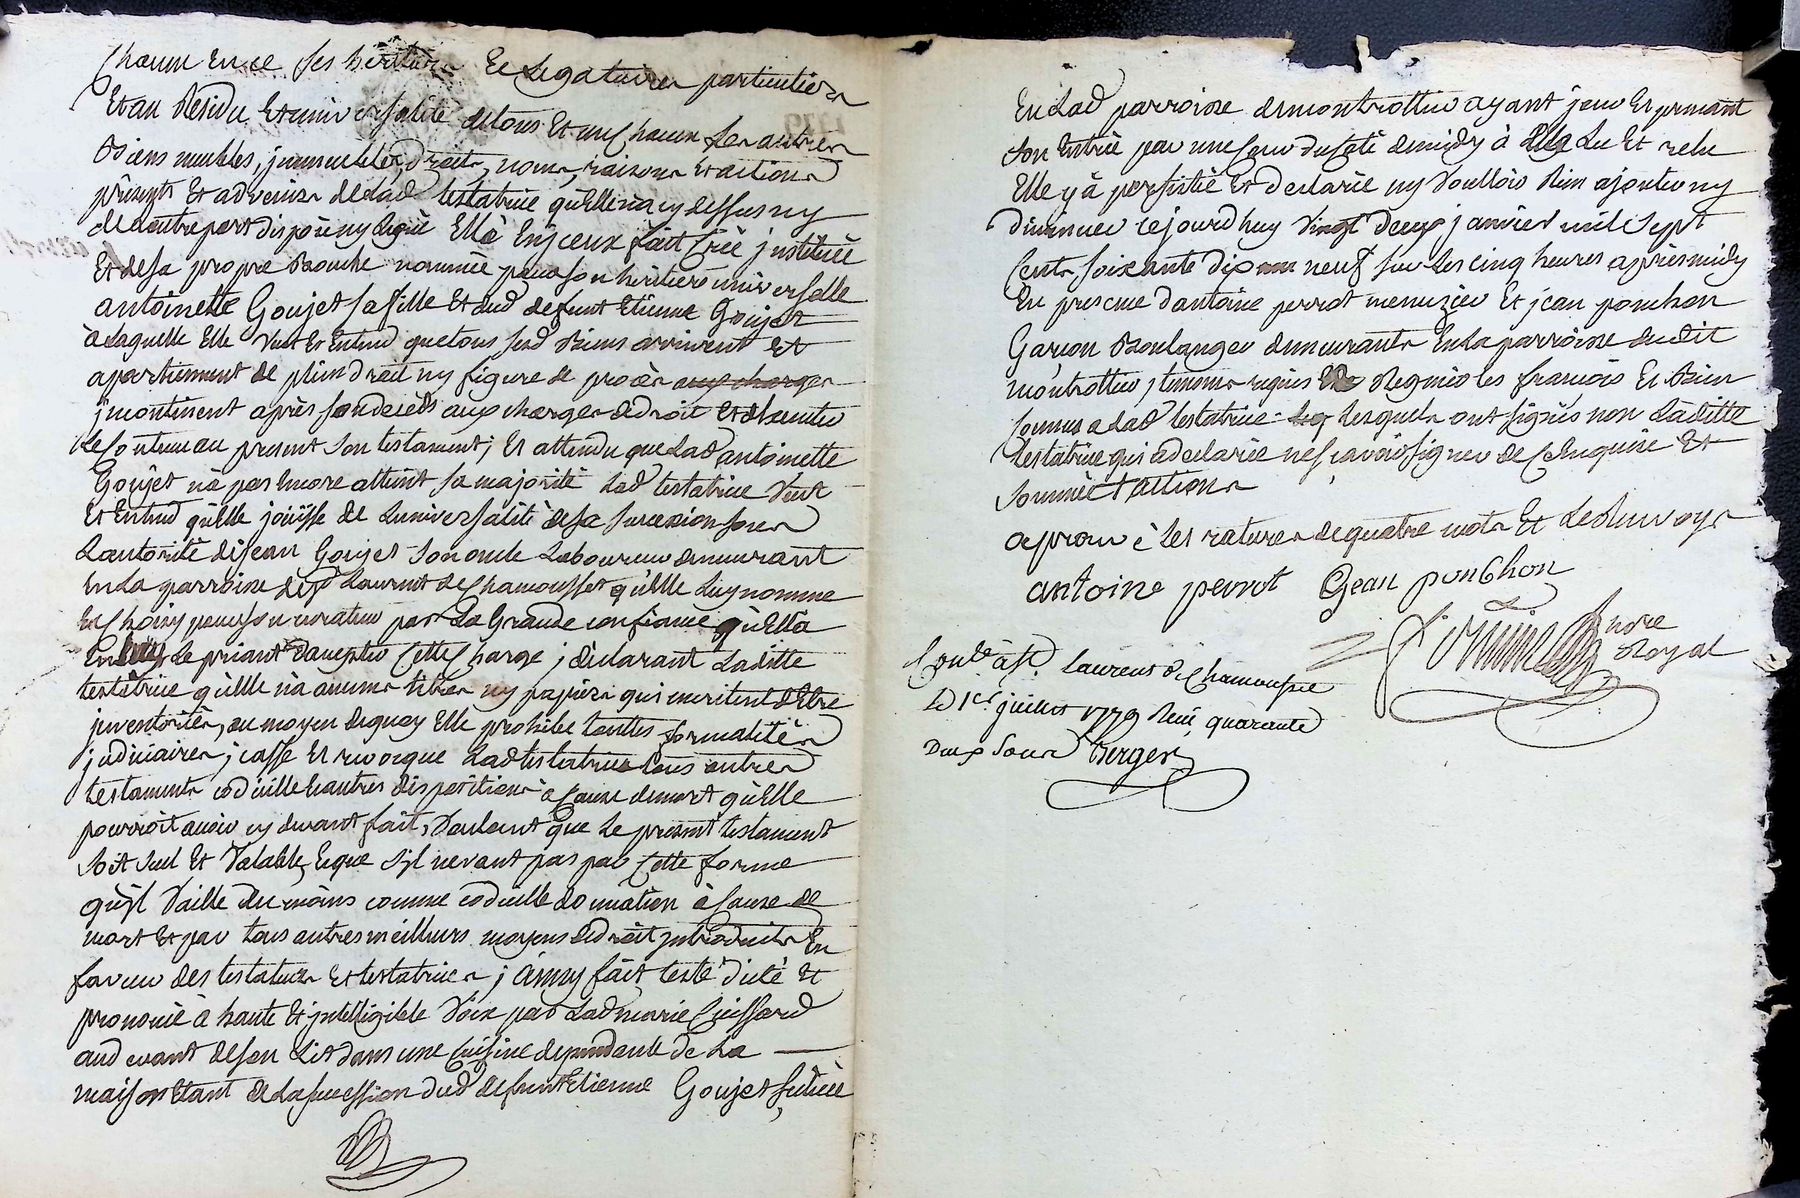 chacun en ce ses heritiers et legataires particuliers
Et au Residu Et universalité de tous Et un chacun ses autres
Biens meubles, jmmeubles, droits, noms, raisons Et actions
présents Et advenirs de lad testatrice qu'Elle n'a cy dessus ny
de d'autre part disposé ny legué Ellè En jceux fait créé jnstitué
Et de sa propre Bouche nommée pour son héritière universelle
antoinette Goujet sa fille Et dud defunt Etienne Goujet
à laquelle Elle veut Et Entend que tous sesd Biens arrivent Et
apartiennent de plein droit ny figure de procès aux charges
jncontinent après son decéds aux charges de droit Et d'executer
le contenu au present son testament; Et attendu que lad antoinette
Goujet n'a pas Encore atteint sa majorité lad testatrice veut
Et Entend qu'Elle joüisse de l'universalité de sa succession sous
l'autorité de jean Goujet son oncle laboureur demeurant
En la parroisse de st laurent de chamousset qu'Elle luy nomme
Et choisy pour son curateur par la Grande confiance qu'Ella
En luy le priant d'accepter cette charge; declarant laditte
testatrice qu'Elle n'a aucuns titres ny papiers qui meritent d'Etre
jnventoriés, au moyen de quoy Elle prohibe touttes formalités
judiciaires; casse Et revoque lad testatrice tous autres
testaments codicille Et autres dispositions à cause de mort qu'Elle
pourroit avoir cy devant fait, voulant que le present testament
soit seul Et valable, Et que s'jl ne vaut pas par cette forme
qu'jl vaille du moins comme codicille donnation à cause de
mort Et par tous autres meilleurs moyens de droit jntroduits En
faveur des testateurs Et testatrices; ainsy fait testé dicté Et
prononcé à haute Et jntelligible voix par lad marie Cuissard
au devant de son lit dans une cuisine dependante de la
maison Etant de la succession dud defunt Etienne Goujet sictuée
En lad parroisse de montrottier ayant jour Et prenant
son Entrée par une cour du coté de midy à Elle lu Et relu
Elle y à persistée Et declarée ny vouloir Rien ajouter ny
diminuer cejourd'huy vingt deux janvier mil sept
cents soixante dix neuf sur les cinq heures après midy
En presence d'antoine perrot menuzier Et jean ponchon
Garçon Boulanger demeurants En la parroisse dudit
montrottier, temoins requis Regnicoles françois Et Bien
connus a lad testatrice lesquels ont signés non laditte
testatrice qui a declarée ne sçavoir signer de ce Enquise Et
sommée
aprouvé les ratures de quatre mots Et le Renvoy
antoine perrot Gean ponchon
nore
Royal
Conlé à St. laurent de Chamousset
le 1er juillet 1779 Reçu quarante
Deux sous Berger